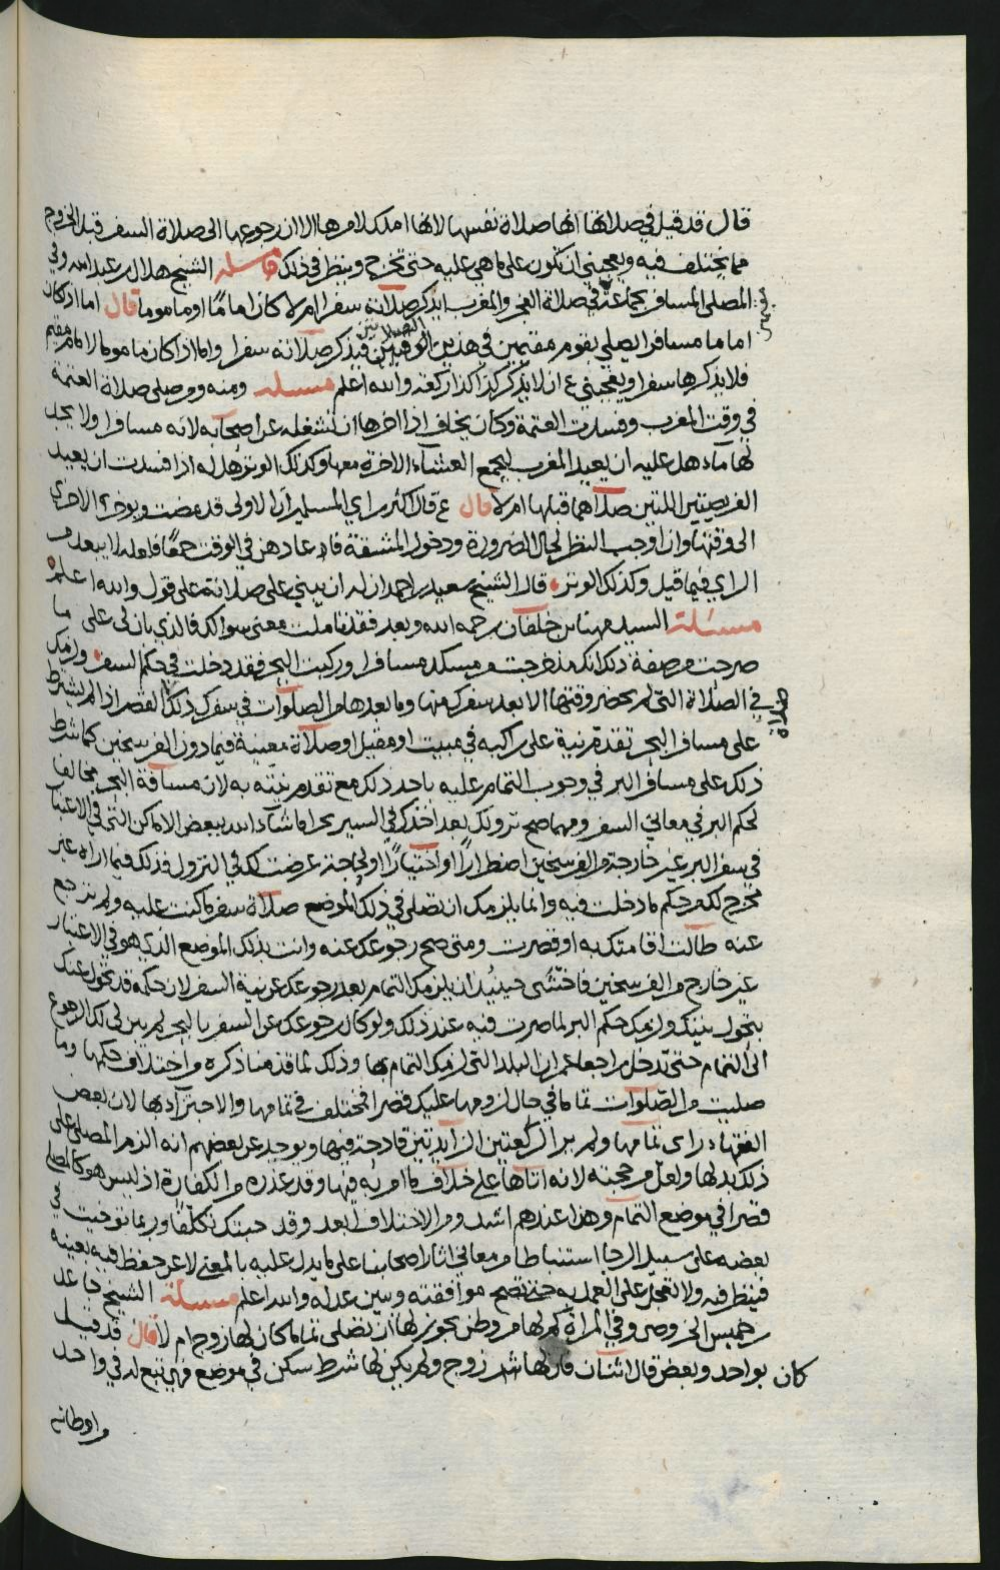 قال قد قيل في صلاتها انها صلاة نفسها لانها املك لامرها الا ان رجوعها الى صلاة السفر قبل الخروج
مما يختلف فيه ويعجبني ان تكون على ما هي عليه حتى تخرج وينظر في ذلك مسئلة الشيخ هلال بن عبدالله وفي
المصلي المسافر جماعة في صلاة الفجر والمغرب ايذكر صلاته سفرا ام لا كان اماما او ماموما قال اما اذا كان
اماما مسافرا يصلي بقوم مقيمين في هذين الوقتين الصلاتين فيذكر صلاته سفرا واما اذا كان ماموما بامام مقيم
فلا يذكرها سفرا ويعجبني ع ان لا يذكر كذا كذا ركعة والله اعلم مسئلة ومنه ومن صلى صلاة العتمة
في وقت المغرب وفسدت العتمة وكان يخاف اذا اخرها ان تشغله عن اصحابه لانه مسافر ولا يجد
لها ماء هل عليه ان يعيد المغرب ليجمع العشاء الاخرة معها وكذلك الوتر هل له اذا فسدت ان يعيد
الفريضتين اللتين صلاهما قبلها ام لا قال ع قال اكثر راي المسلمين ان الاولى قد مضت ويوخر الاخرى
الى وقتها وان اوجب النظر لحال الضرورة ودخول المشقة فاعادهن في الوقت جمعا فلعله لا يبعد من
الراي فيما قيل وكذلك الوتر قال الشيخ سعيد بن احمد ان له ان يبني على صلاته على قول والله اعلم
مسئلة السيد مهنا بن خلفان رحمه الله وبعد فقد تاملت معنى سوالك فالذي بان لي على ما
صرحت من صفة ذلك انك مذ خرجت من مسكد مسافرا وركبت البحر فقد دخلت في حكم السفر ولزمك
في الصلاة التي لم يحضر وقتها الا بعد سفرك منها وما بعدها من الصلوات في سفرك ذلك صلاة القصر اذ لم يشترط
على مسافر البحر تقدم نية على راكبه في مبيت او مقيل او صلاة معينة فيما دون الفرسخين كما شرط
ذلك على مسافر البر في وجوب التمام عليه باحد ذلك مع تقدم نيته به لان مسافة البحر مخالف
لحكم البر في معاني السفر ومهما صح نزولك بعد اخذك في السير بحرا ما شاء الله ببعض الاماكن التي في الاعتبار
في سفر البر غير خارجة من الفرسخين اضطرارا او اختيارا او لحاجة عرضت لك في النزول فذلك فيما اراه غير
مخرج لك من حكم ما دخلت فيه وانما يلزمك ان تصلي في ذلك الموضع صلاة سفر ما كنت عليه ولم ترجع
عنه طالت اقامتك به او قصرت ومتى صح رجوعك عنه وانت بذلك الموضع الذي هو في الاعتبار
غير خارج من الفرسخين فاخشى حينئذ ان يلزمك التمام بعد رجوعك عن نية السفر لان حكمه قد تحول عنك
بتحول نيتك ولزمك حكم البر لما صرت فيه عند ذلك ولو كان رجوعك عن السفر بالبحر لم يبن لي لك الرجوع
الى التمام حتى تدخل راجعا عمران البلد التي لزمك التمام بها وذلك لما قدمنا ذكره من اختلاف حكمها وما
صليت من الصلوات تماما في حال لزومها عليك قصرا فمختلف في تمامها والاجتزاء بها لان بعض
الفقهاء راى تمامها ولم ير الركعتين الزايدتين قادحة فيها ويوجد عن بعضهم انه الزم المصلي على
ذلك بدلها ولعل من حجته لانه اتاها على خلاف ما امر به فيها وقد عذره من الكفارة اذ ليس هو كالمصلي
قصرا في موضع التمام وهذا عندهم اشد ومن الاختلاف ابعد وقد جئتك تكلفا وربما توخيت في
بعضه على سبيل الرجا استنباطا من معاني اثار اصحابنا على ما يدل عليه بالمعنى لا عن حفظ فيه بعينه
فينظر فيه ولا تعجل على العمل به حتى تصح موافقته وتبين عدله والله اعلم مسئلة الشيخ جاعد
بن خميس الخروصي وفي المراة كم لها من وطن يجوز لها ان تصلي تماما كان لها زوج ام لا قال قد قيل
كان بواحد وبعض قال اثنان فان لها زوج ولم يكن لها شرط سكن في موضع فهي تبع له في واحد
من اوطانه